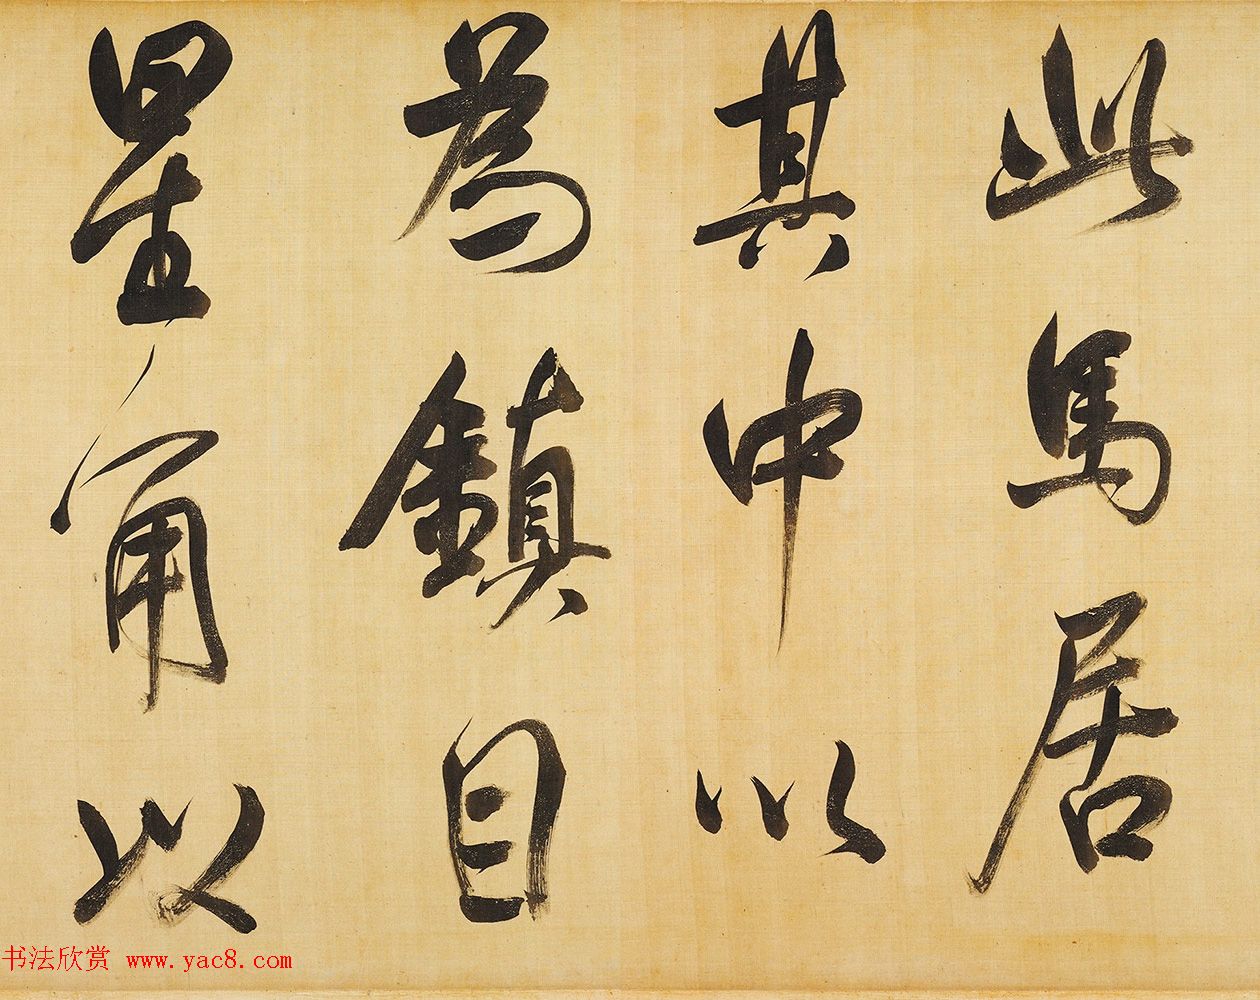 此馬居
其中以
為鎮目
星角以
书法欣赏 www.yac8.com